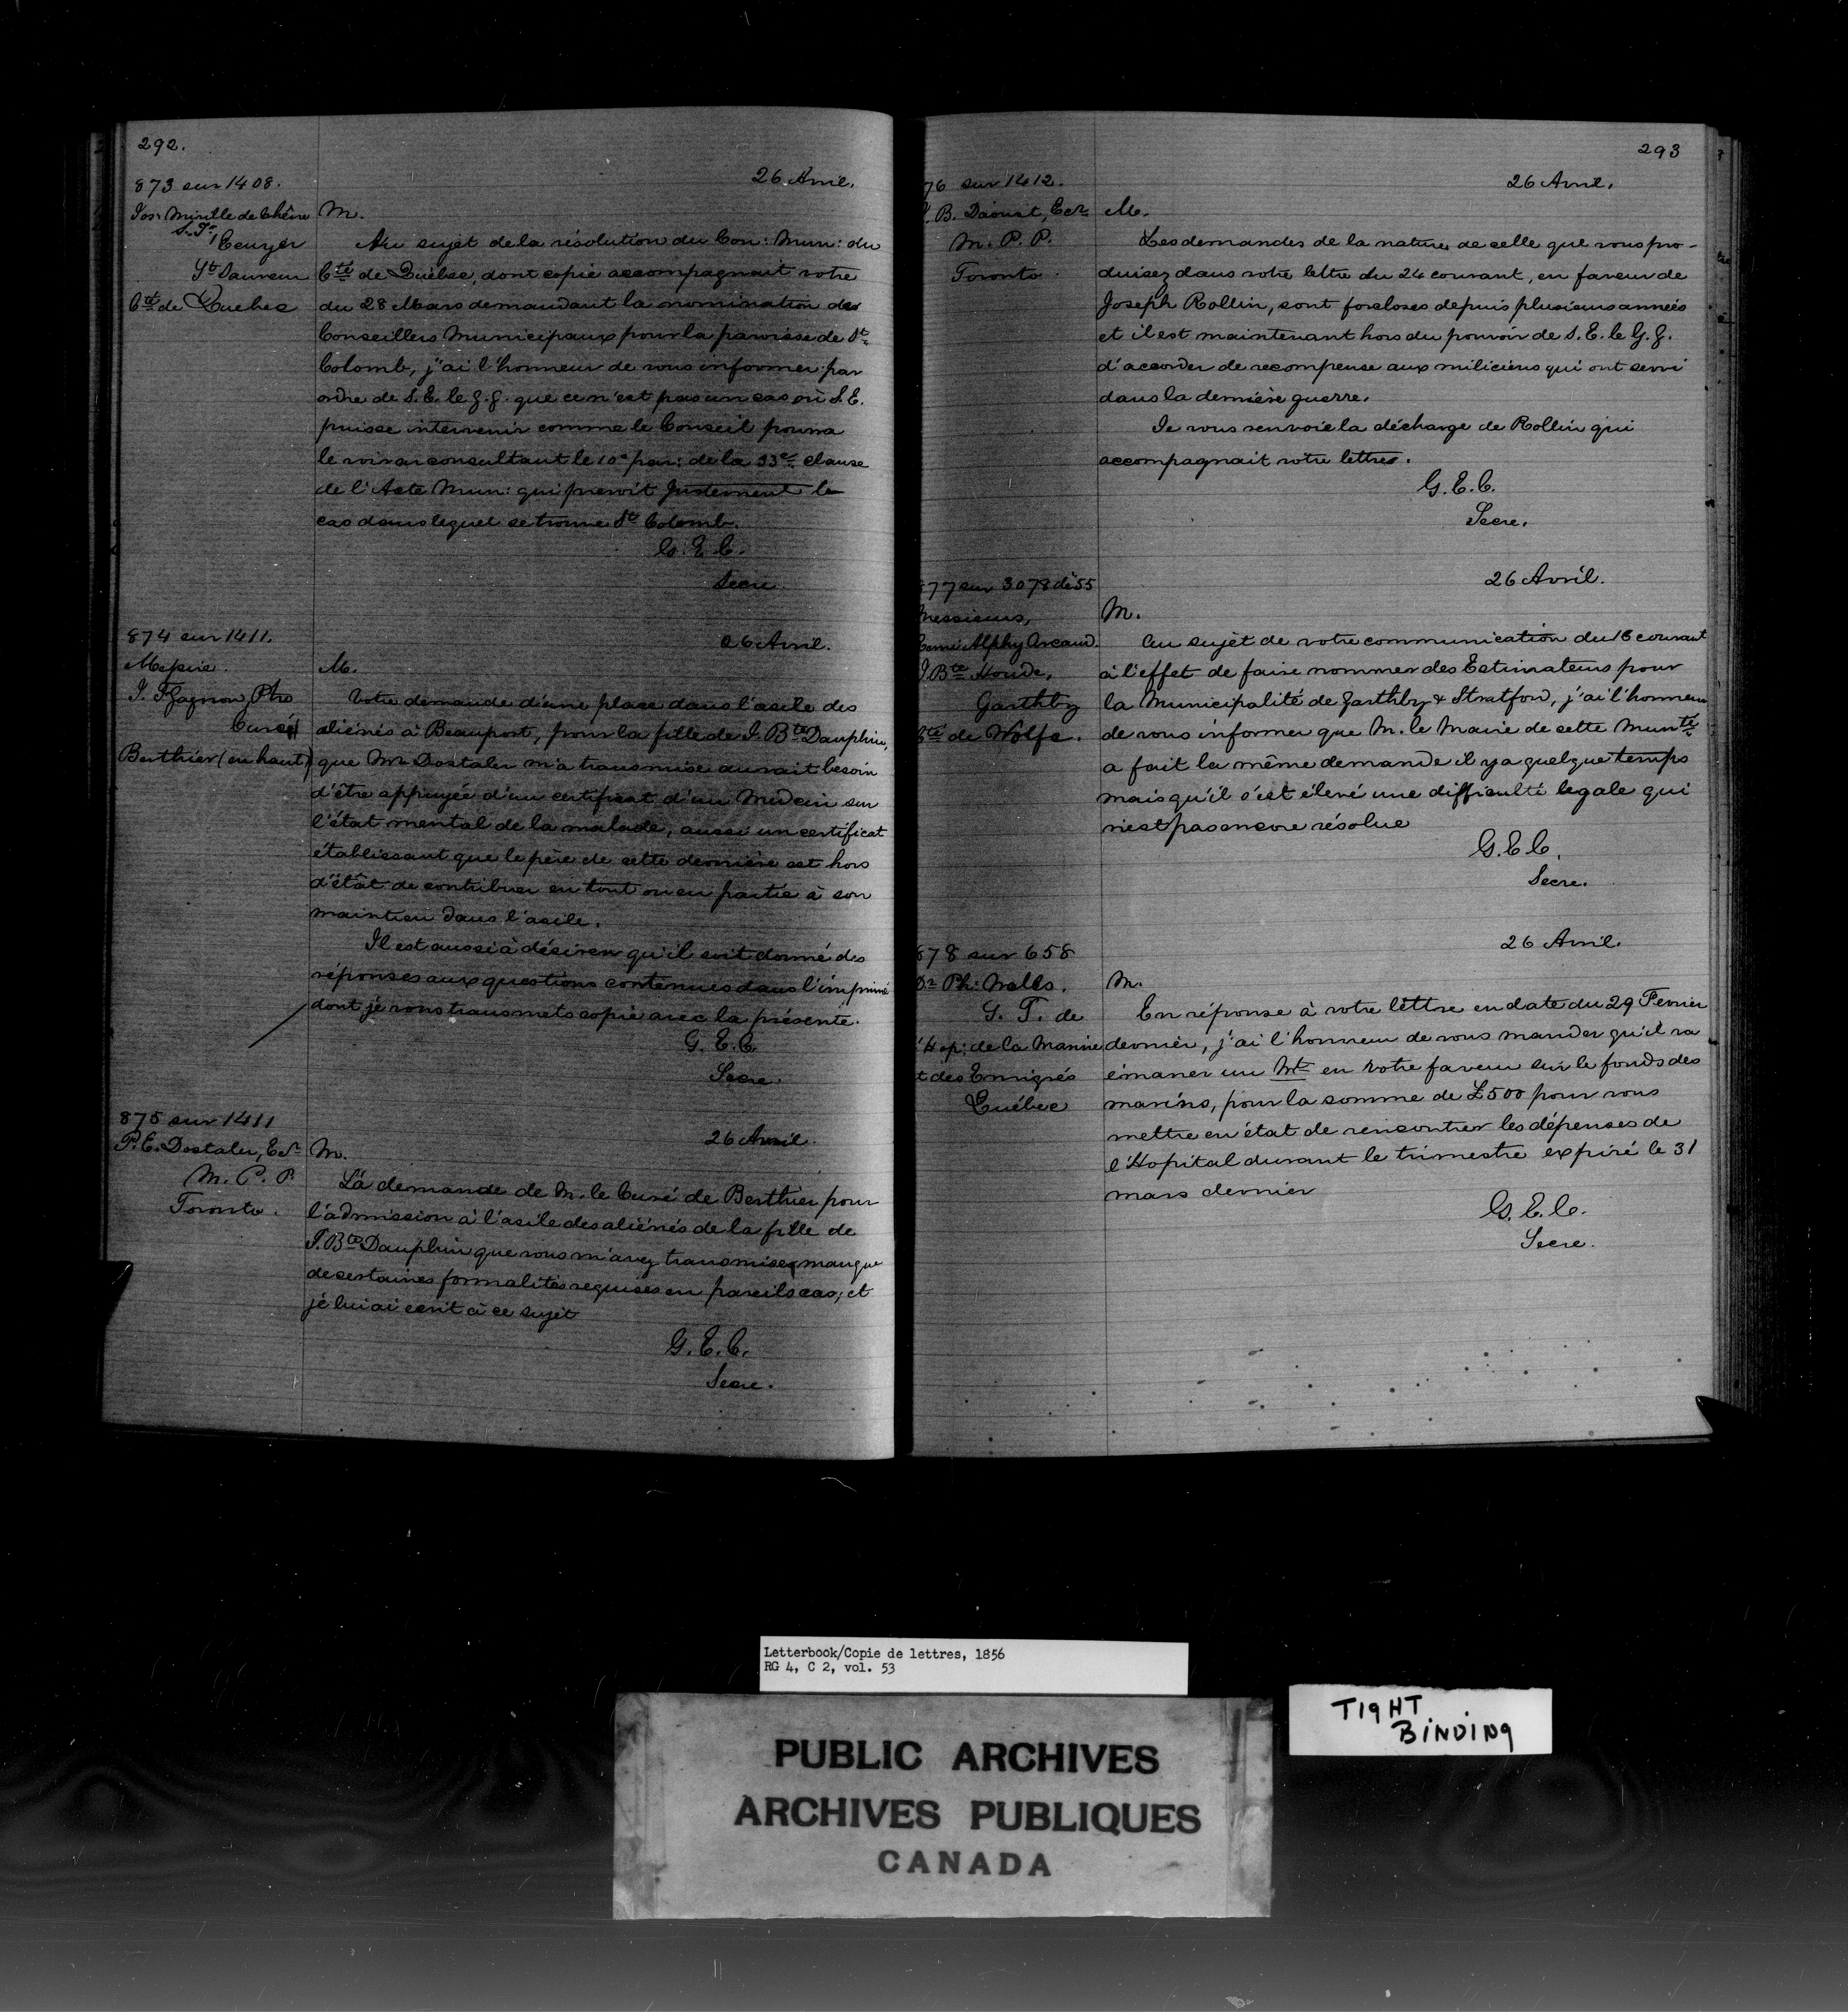 292.
873 sur 1408.
26 Avril.
Jos: Miville de Chêne
S. T.
Ecuyer
St Sauveur
Cté de Quebec
M.
Au sujet de la résolution du Con: Mun: du
Cté de Québec, dont copie accompagnait votre
du 28 Mars demandant la nomination des
Conseillers Municipaux pour la paroisse de St
Colomb, j'ai l'honneur de vous informer par
ordre de S. E. le G. G. que ce n'est pas un cas où S. E.
puisse intervenir comme le Conseil pourra
le voir en consultant le 10e par: de la 33e clause
de l'Acte Mun: qui prevoit justement le
cas dans lequel se trouve St Colomb.
G. E. C.
Secre
874 sur 1411.
26 Avril.
Messire
J. F. Gagnon, Ptre
Curé
Berthier (en haut)
M.
Votre demande d'une place dans l'asile des
aliénés à Beauport, pour la fille de J. Bte Dauphin,
que Mr Dostaler m'a transmise aurait besoin
d'être appuyée d'un certificat d'un Médecin sur
l'état mental de la malade, aussi un certificat
établissant que le père de cette dernière est hors
d'état de contribuer en tout ou en partie à son
maintien dans l'asile.
Il est aussi à désirer qu'il soit donné des
réponses aux questions contenues dans l'imprimé
dont je vous transmets copie avec la présente.
G. E. C.
Secre.
875 sur 1411
26 Avril.
P. E. Dostaler, Ecr
M. P. P.
Toronto.
M.
La demande de M. le Curé de Berthier pour
l'admission à l'asile des aliénés de la fille de
J. Bte Dauphin que vous m'avez transmise, manque
de certaines formalités requises en pareils cas, et
je lui ai ecrit à ce sujet
G. E. C.
Secre.
293
76 sur 1412.
26 Avril.
J. B. Daoust, Ecr
M. P. P.
Toronto.
M.
Les demandes de la nature de celle que vous pro-
duisez dans votre lettre du 24 courant, en faveur de
Joseph Rollin, sont forcloses depuis plusieurs années
et il est maintenant hors du pouvoir de S. E. le G. G.
d'accorder de recompense aux miliciens qui ont servi
dans la dernière guerre.
Je vous renvoie la décharge de Rollin qui
accompagnait votre lettre.
G. E. C.
Secre.
877 sur 3078 de 55
26 Avril.
Messieurs,
Alphy Arcand.
J. Bte Houde,
Garthby
Cté de Wolfe.
M.
Au sujet de votre communication du 18 courant
à l'effet de faire nommer des Estimateurs pour
la Municipalité de Garthby & Stratford, j'ai l'honneur
de vous informer que M. le Maire de cette Munté
a fait la même demande il y a quelque temps
mais qu'il s'est élevé une difficulté legale qui
n'est pas encore résolue
G. E. C.
Secre.
878 sur 658
26 Avril.
Dr Ph: Wells.
S. T. de
l'Hop: de la Marine
et des Emigrés
Québec
M.
En réponse à votre lettre en date du 29 Fevrier
dernier, j'ai l'honneur de vous mander qu'il va
émaner un Wt en votre faveur sur le fonds des
marins, pour la somme de £500 pour vous
mettre en état de rencontrer les dépenses de
l'Hopital durant le trimestre expiré le 31
mars dernier
G. E. C.
Secre.
Letterbook/Copie de lettres, 1856
RG 4, C 2, vol. 53
TIGHT
BINDING
PUBLIC ARCHIVES
ARCHIVES PUBLIQUES
CANADA